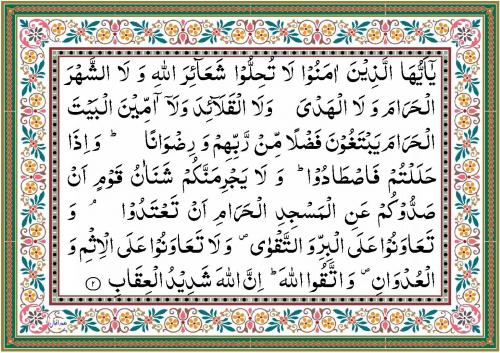 يٰۤاَيُّهَا الَّذِيْنَ اٰمَنُوْا لَا تُحِلُّوْا شَعَآئِرَ اللّٰهِ وَ لَا الشَّهْرَ
الْحَرَامَ وَ لَا الْهَدْىَ وَلَا الْقَلَآئِدَ وَلَاۤ آٰمِّيْنَ الْبَيْتَ
الْحَرَامَ يَبْتَغُوْنَ فَضْلًا مِّنْ رَّبِّهِمْ وَ رِضْوَانًا ؕ وَ اِذَا
حَلَلْتُمْ فَاصْطَادُوْا ؕ وَ لَا يَجْرِمَنَّكُمْ شَنَاٰنُ قَوْمٍ اَنْ
صَدُّوْكُمْ عَنِ الْمَسْجِدِ الْحَرَامِ اَنْ تَعْتَدُوْا ۘ وَ
تَعَاوَنُوْا عَلَى الْبِرِّ وَ التَّقْوٰى ۪ وَ لَا تَعَاوَنُوْا عَلَى الْاِثْمِ وَ
الْعُدْوَانِ ۪ وَ اتَّقُوا اللّٰهَ ؕ اِنَّ اللّٰهَ شَدِيْدُ الْعِقَابِ ﴿۲﴾